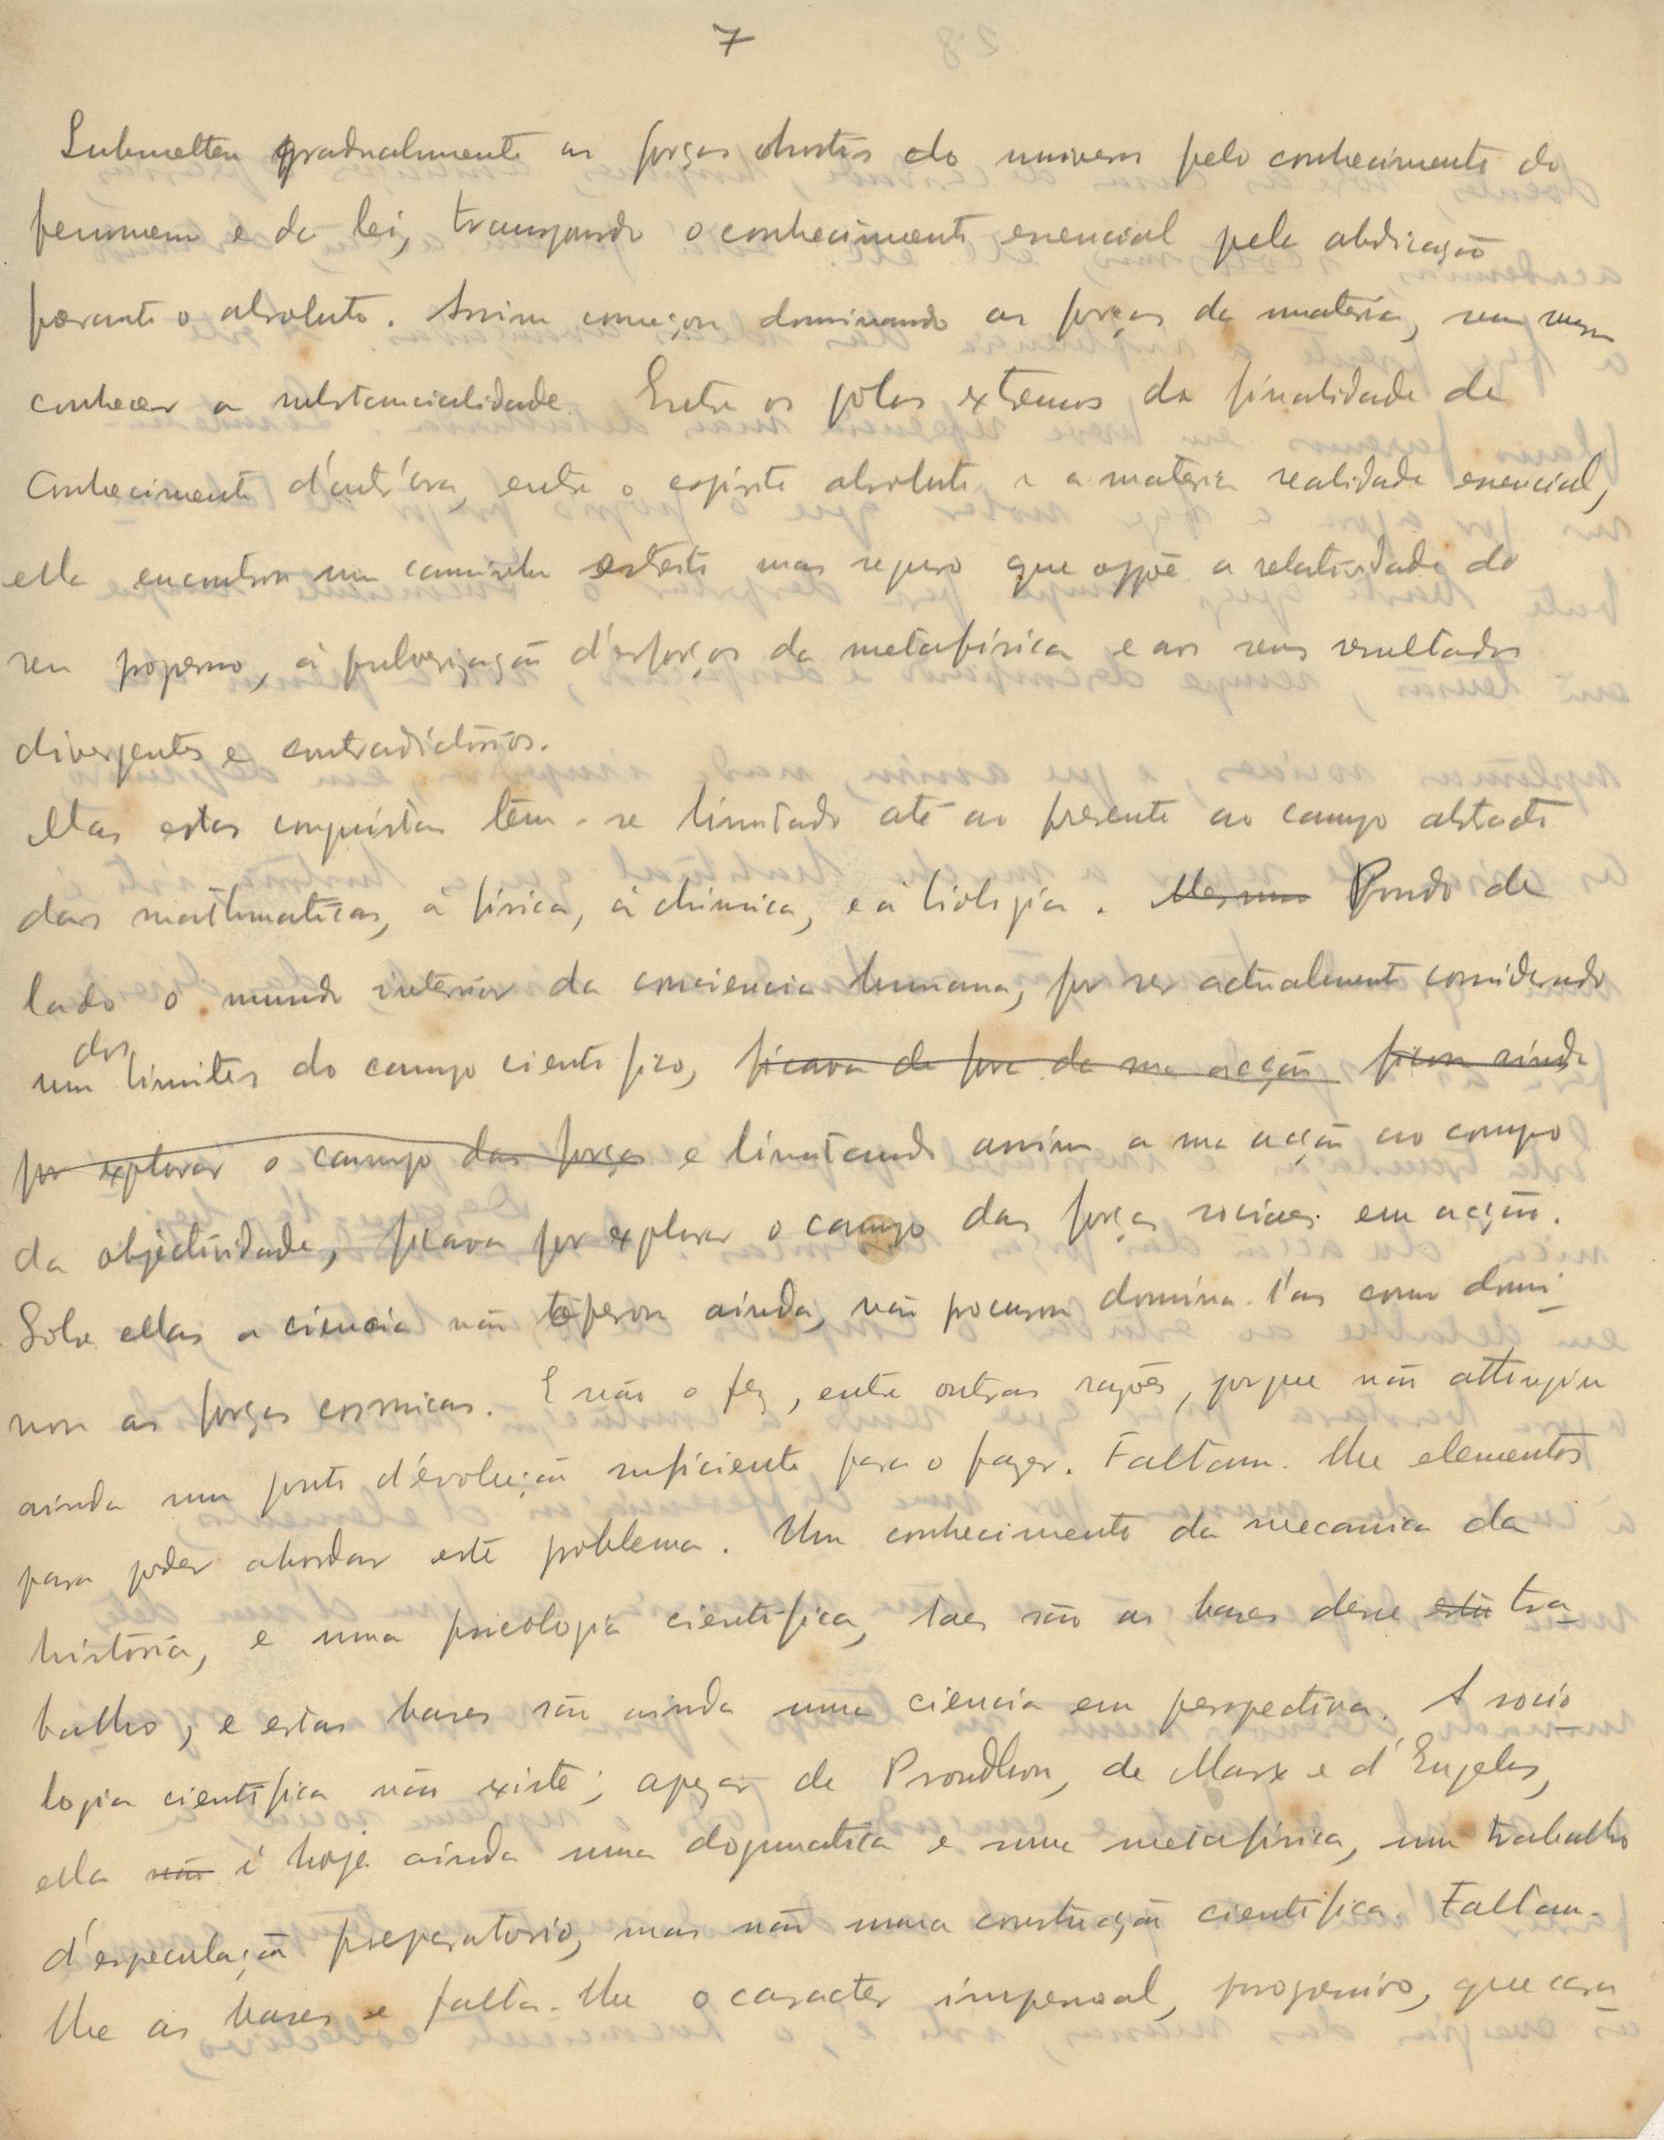 7
Submetteu gradualmente as forças do universo pelo conhecimento do
fenomeno e da lei, o conhecimento essencial pela abdicação
perante o absoluto. Assim começou dominando as forças da materia, sem
conhecer a substancialidade. Entre os polos extremos da finalidade de
conhecimento d'outr'ora, entre o espirito absoluto e a materia realidade essencial,
ella encontrou um caminho mas seguro que oppõe a relatividade do
seu progresso, á pulverização d'esforços da metafísica e aos seus resultados
divergentes e contradictórios.
Mas estas conquistas têm-se limitado até ao presente ao campo abstracto
das mathmaticas, á física, á chimica, e á biologia. Mesmo Pondo de
lado o mundo interior da consciencia humana, por ser actualmente considerado
um dos limites do campo cientifico, ficava de fora da sua acção ficou ainda
por explorar o campo das forças e limitando assim a sua acção ao campo
da objectividade, ficava por explorar o campo das forças sociaes em acção.
Sobre ellas a ciencia não operou ainda, não procurou domina-l'as como domi-
nou as forças cosmicas. E não o fez, entre outras razões, porque não attingiu
ainda um ponto d'évolução suficiente para o fazer. Faltam-lhe elementos
para poder abordar este problema. Um conhecimento da mecanica da
história, e uma psicologia cientifica, taes são as bases desse este tra-
balho, e estas bases são ainda uma ciencia em perspectiva. A socio-
logia cientifica não existe; apezar de Proudhon, de Marx e d'Engels,
ella não é hoje ainda uma dogmatica e uma metafísica, um trabalho
d'especulação preparatorio, mas não uma construcção cientifica. Faltam-
lhe as bases e falta-lhe o caracter impessoal, progressivo, que cara